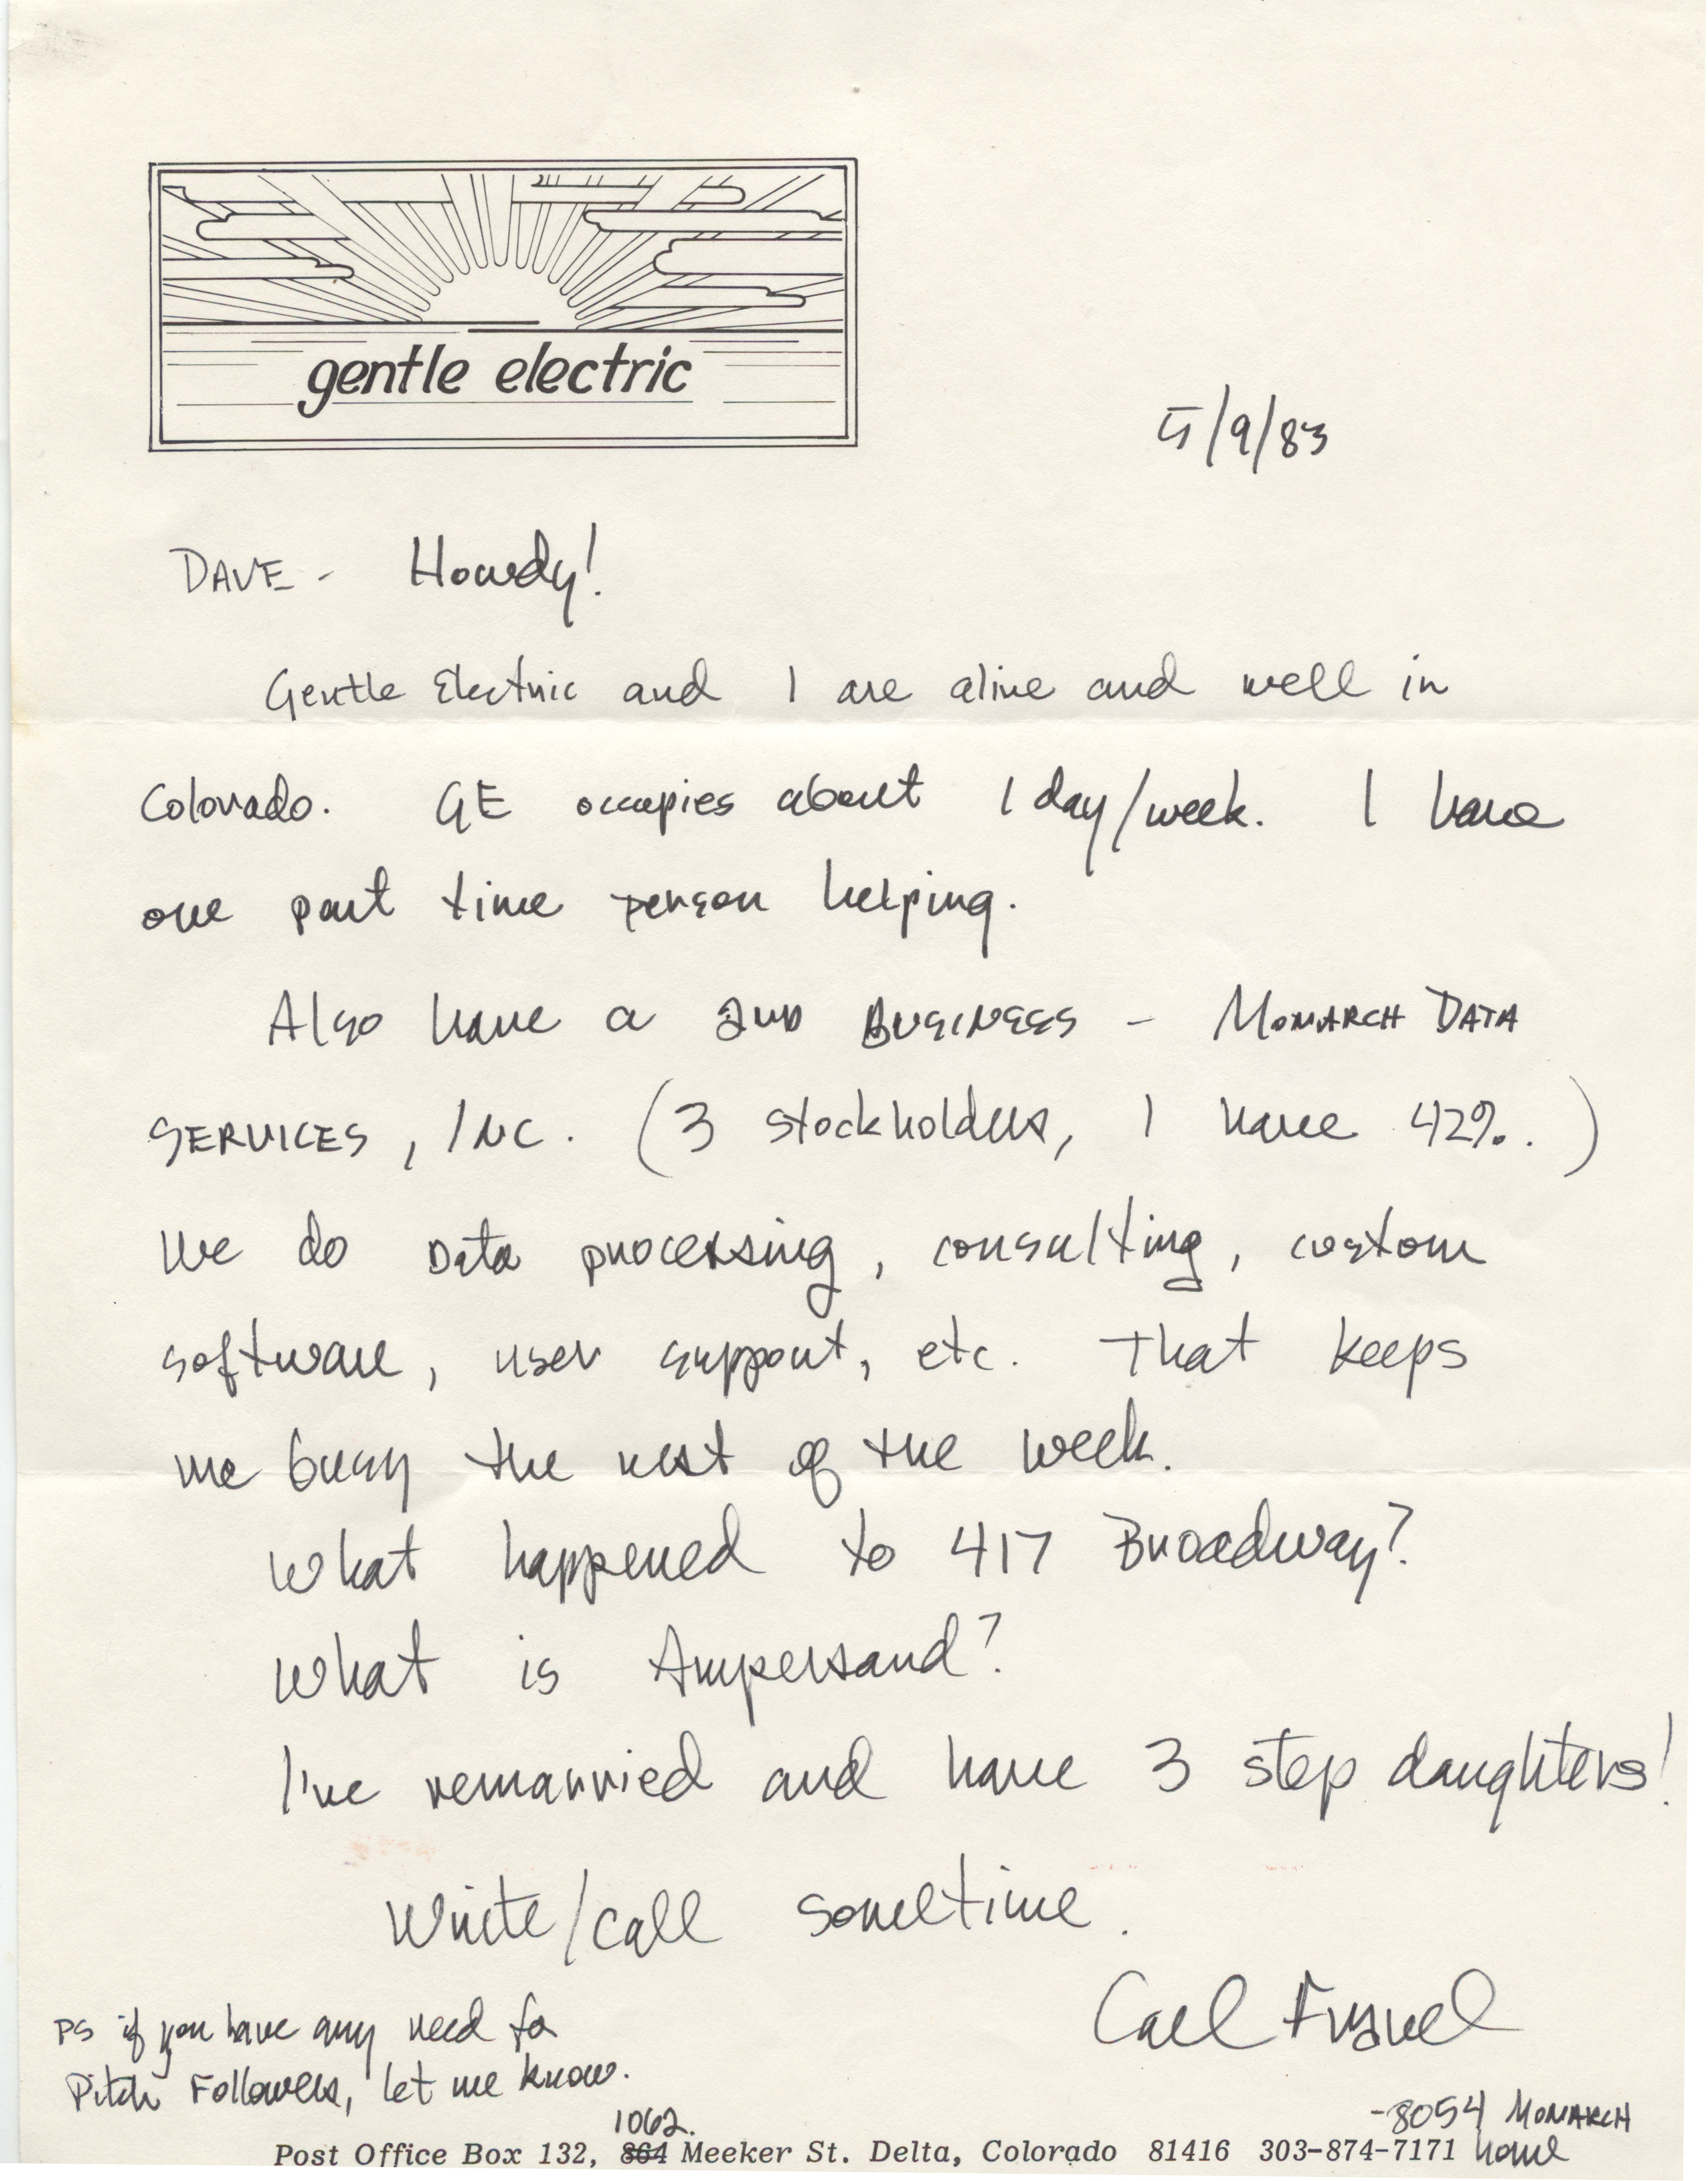 gentle electric
5/9/83
DAVE - Howdy!
Gentle Electric and I are alive and well in
Colorado. GE occupies about 1 day/week. I have
one part time person helping.
Also have a 2ND BUSINESS - MONARCH DATA
SERVICES, INC. (3 stockholders, I have 42%.)
We do Data processing, consulting, custom
software, user support, etc. That keeps
me busy the rest of the week.
What happened to 417 Broadway?
What is Ampersand?
I've remarried and have 3 step daughters!
Write/call sometime.
Carl Fravel
PS if you have any need for
Pitch Followers, let me know.
-8054 MONARCH
1062
Post Office Box 132, 864 Meeker St. Delta, Colorado 81416 303-874-7171 home